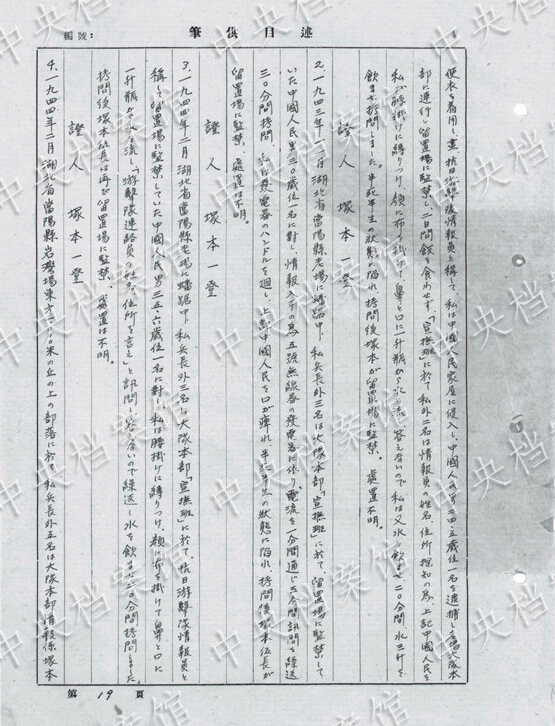 編號:
筆供目述
便衣を着用し、壹、抗日游擊隊情報員と稱して、私は中國人民家屋に侵入し、中國人民男三四、五歳位一名を逮捕し、老場大隊本
部に連行し留置場に監禁し、二日間飯を食わせず、「宣撫班」に於て私外二名は情報員の姓名、住所、探知の爲、上記中國人民を
私が腰掛けに縛りつけ、顔に布を掛けて鼻と口に一升瓶から水を流し、答えないので私は又水を飲ませ二〇分間、水三升を
飲ませ拷問しました。半死半生の狀態に陥れ、拷問後塚本が留置場に監禁。處置不明。
證人 塚本一登
2. 一九四三年 月湖北省當陽縣老場に蟠踞中、私兵長外三名は大隊本部「宣撫班」に於て、留置場に監禁して
いた中國人民男三〇歳位一名に對し、情報入手の爲五號無線器の發電器に依り、電流を一分間通じ五分間訊問を繰返
三〇分間拷問、私は發電器のハンドルを廻し、上記中國人民を口が痺れ、半死半生の狀態に陥れ、拷問後塚本伍長が
留置場に監禁、處置は不明。
證人 塚本一登
3. 一九四四年二月湖北省當陽縣老場に蟠踞中、私兵長外三名は大隊本部「宣撫班」に於て、抗日游擊隊情報員と
稱して留置場に監禁していた中國人民男三五、六歳位一名に對し、私は腰掛けに縛りつけ、顔に布を掛けて鼻と口に
一升瓶から水を流し、「游擊隊連絡員の姓名、住所を言え」と訊問し、答えないので繰返し水を飲ませ二〇分間拷問しました。
拷問後塚本伍長は再び留置場に監禁、處置は不明。
證人 塚本一登
4. 一九四四年二月湖北省當陽縣 場東方 〇〇米の丘の上の部落に於て、私兵長外五名は大隊本部情報係塚本
第 19 頁
中央档案馆